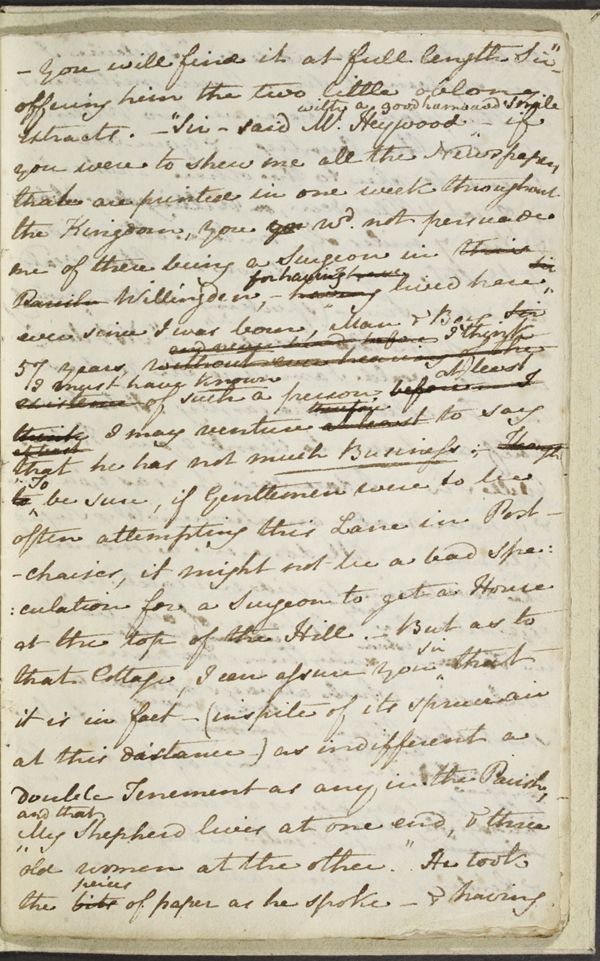 - you will find it at full length Sir"-
offering him the two little oblong
with a goodhumoured Smile
extracts. - "Sir - said Mr. Heywood - if
you were to shew me all the Newspapers
that are printed in one week throughout
the Kingdom, you yo wd. not persuade
me of there being a Surgeon in this
for having
Parish Willingden, - having lived here
ever since I was born, Man & Boy
and never heard before I think
57 years, without ever hearing of the
I must have known at least
existence of such a person, before I
therefore
think I may venture at least to say
at least
that he has not much Business; - Though
To
to be sure, if Gentlemen were to be
often attempting this Lane in Post-
-chaises, it might not be a bad spe:
:culation for a Surgeon to get a House
at the top of the Hill. - But as to
Sir
that Cottage, I can assure you that
it is in fact - (inspite of its spruce air
at this distance) as indifferent a
Double Tenement as any in the Parish,
and that
My Shepherd lives at one end, & three
"old women at the other." He took
peices
the bits of paper as he spoke - & having